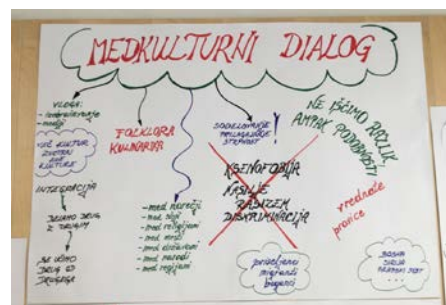 MEDKULTURNI DIALOG
VLOGA:
- izobraževanje
- mediji
VEČ KULTUR
KULTURE
INTEGRACIJA
DELAMO DRUG
Z DRUGIM
SE UČIMO
DRUG OD
DRUGEGA
FOLKLORA
KULINARIKA
- med narečji
- med religijami
- med državami
- med narodi
- med regijami
SODELOVANJE
PRILAGAJANJE
STRPNOST
KSENOFOBIJA
NASILJE
RASIZEM
DISKRIMINACIJA
NE IŠČIMO RAZLIK,
AMPAK PODOBNOSTI
vrednote
pravice
priseljenci
migranti
begunci
BOSNA
SIRIJA